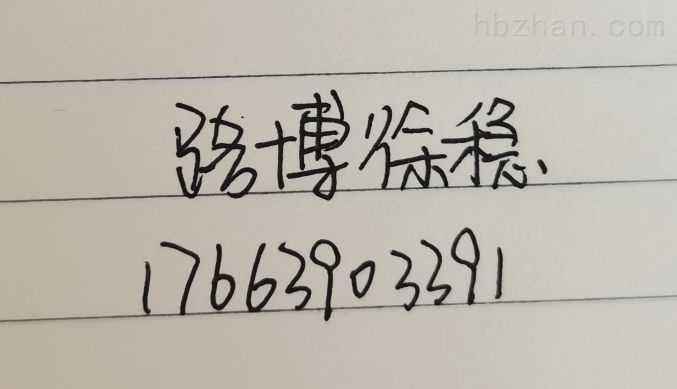 hbzhan.com
路博徐稳
17663903391